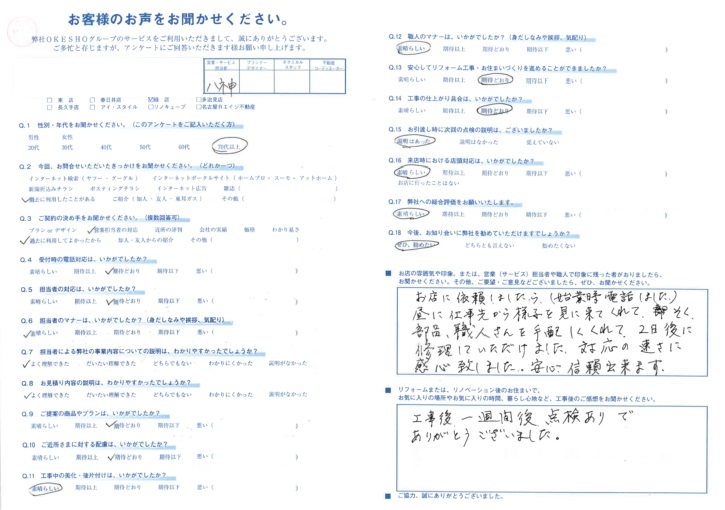 お客様のお声をお聞かせください。
弊社OKESHOグループのサービスをご利用いただきまして、誠にありがとうございます。
ご多忙と存じますが、アンケートにご回答いただきます様お願い申し上げます。
営業・サービス 担当者
プランナー デザイナー
テクニカル スタッフ
不動産 コーディネーター
八神
□ 本店 □ 春日井店 ☑緑店 □多治見店
□ 長久手店 □ アイ・スタイル □リノキューブ □名古屋カエイジ不動産
Q.1 性別・年代をお聞かせください。(このアンケートをご記入いただく方)
男性 女性
20代 30代 40代 50代 60代 70代以上
Q.2 今回、お問合せいただいたきっかけをお聞かせください。(どれか一つ)
インターネット検索(ヤフー・グーグル) インターネットポータルサイト(ホームプロ・スーモ・アットホーム)
新聞折込みチラシ ポスティングチラシ インターネット広告 雑誌( )
過去に利用したことがある ご紹介(加入・友人・東邦ガス) その他( )
Q.3 ご契約の決め手をお聞かせください。(複数回答可)
プラン or デザイン 営業担当者の対応 近所の評判 会社の実績 価格 わかり易さ
過去に利用してよかったから 知人・友人からの紹介 その他( )
Q.4 受付時の電話対応は、いかがでしたか?
素晴らしい 期待以上 期待どおり 期待以下 悪い( )
Q.5 担当者の対応は、いかがでしたか?
素晴らしい 期待以上 期待どおり 期待以下 悪い( )
Q.6 担当者のマナーは、いかがでしたか?(身だしなみや挨拶、気配り)
素晴らしい 期待以上 期待どおり 期待以下 悪い( )
Q.7 担当者による弊社の事業内容についての説明は、わかりやすかったでしょうか?
よく理解できた だいたい理解できた どちらでもない わかりにくかった 説明がなかった
Q.8 お見積り内容の説明は、わかりやすかったでしょうか?
よく理解できた だいたい理解できた どちらでもない わかりにくかった 説明がなかった
Q.9 ご提案の商品やプランは、いかがでしたか?
素晴らしい 期待以上 期待どおり 期待以下 悪い( )
Q.10 ご近所さまに対する配慮は、いかがでしたか?
素晴らしい 期待以上 期待どおり 期待以下 悪い( )
Q.11 工事中の美化・後片付けは、いかがでしたか?
素晴らしい 期待以上 期待どおり 期待以下 悪い( )
Q.12 職人のマナーは、いかがでしたか?(身だしなみや挨拶、気配り)
素晴らしい 期待以上 期待どおり 期待以下 悪い( )
Q.13 安心してリフォーム工事・お住まいづくりを進めることができましたか?
素晴らしい 期待以上 期待どおり 期待以下 悪い( )
Q.14 工事の仕上がり具合は、いかがでしたか?
素晴らしい 期待以上 期待どおり 期待以下 悪い( )
Q.15 お引渡し時に次回の点検の説明は、ございましたか?
説明はあった 説明はなかった 覚えていない
Q.16 来店時における店頭対応は、いかがでしたか?
素晴らしい 期待以上 期待どおり 期待以下 悪い( )
お店に行ったことはない
Q.17 弊社への総合評価をお願いいたします。
素晴らしい 期待以上 期待どおり 期待以下 悪い( )
Q.18 今後、お知り合いに弊社を勧めていただけますでしょうか?
ぜひ、勧めたい どちらとも言えない 勧めたくない
■ お店の雰囲気や印象、または、営業(サービス)担当者や職人で印象に残った者がおりましたら、
お聞かせください。その他、ご要望・ご意見などございましたら、ぜひ、お聞かせください。
お店に依頼しましたら、(始業時電話しました)
昼に仕事先から様子を見に来てくれて、即そく、
部品、職人さんを手配してくれて、2日後に
修理していただけました。対応の速さに
感心致しました。安心信頼出来ます。
■ リフォームまたは、リノベーション後のお住まいで、
お気に入りの場所やお気に入りの時間、暮らし心地など、工事後のご感想をお聞かせください。
工事後、一週間後点検ありで
ありがとうございました。
■ ご協力、誠にありがとうございました。